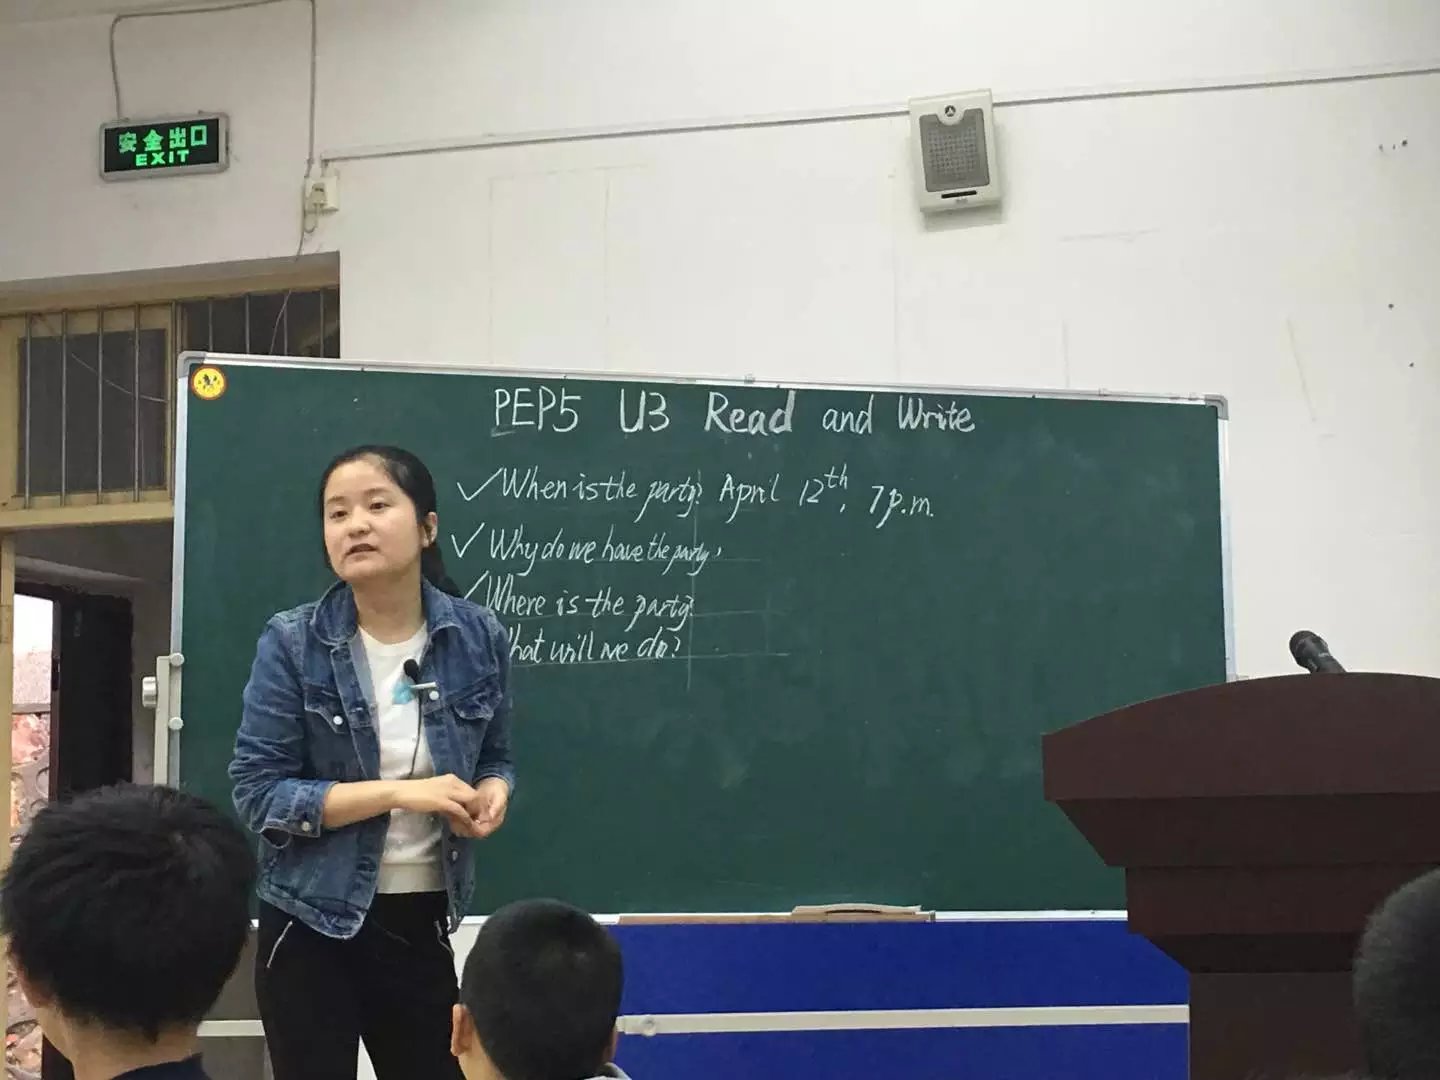 安全出口
EXIT
PEP5 U3 Read and Write
When is the party? April 12th, 7p.m.
Why do we have the party?
Where is the party?
What will we do?